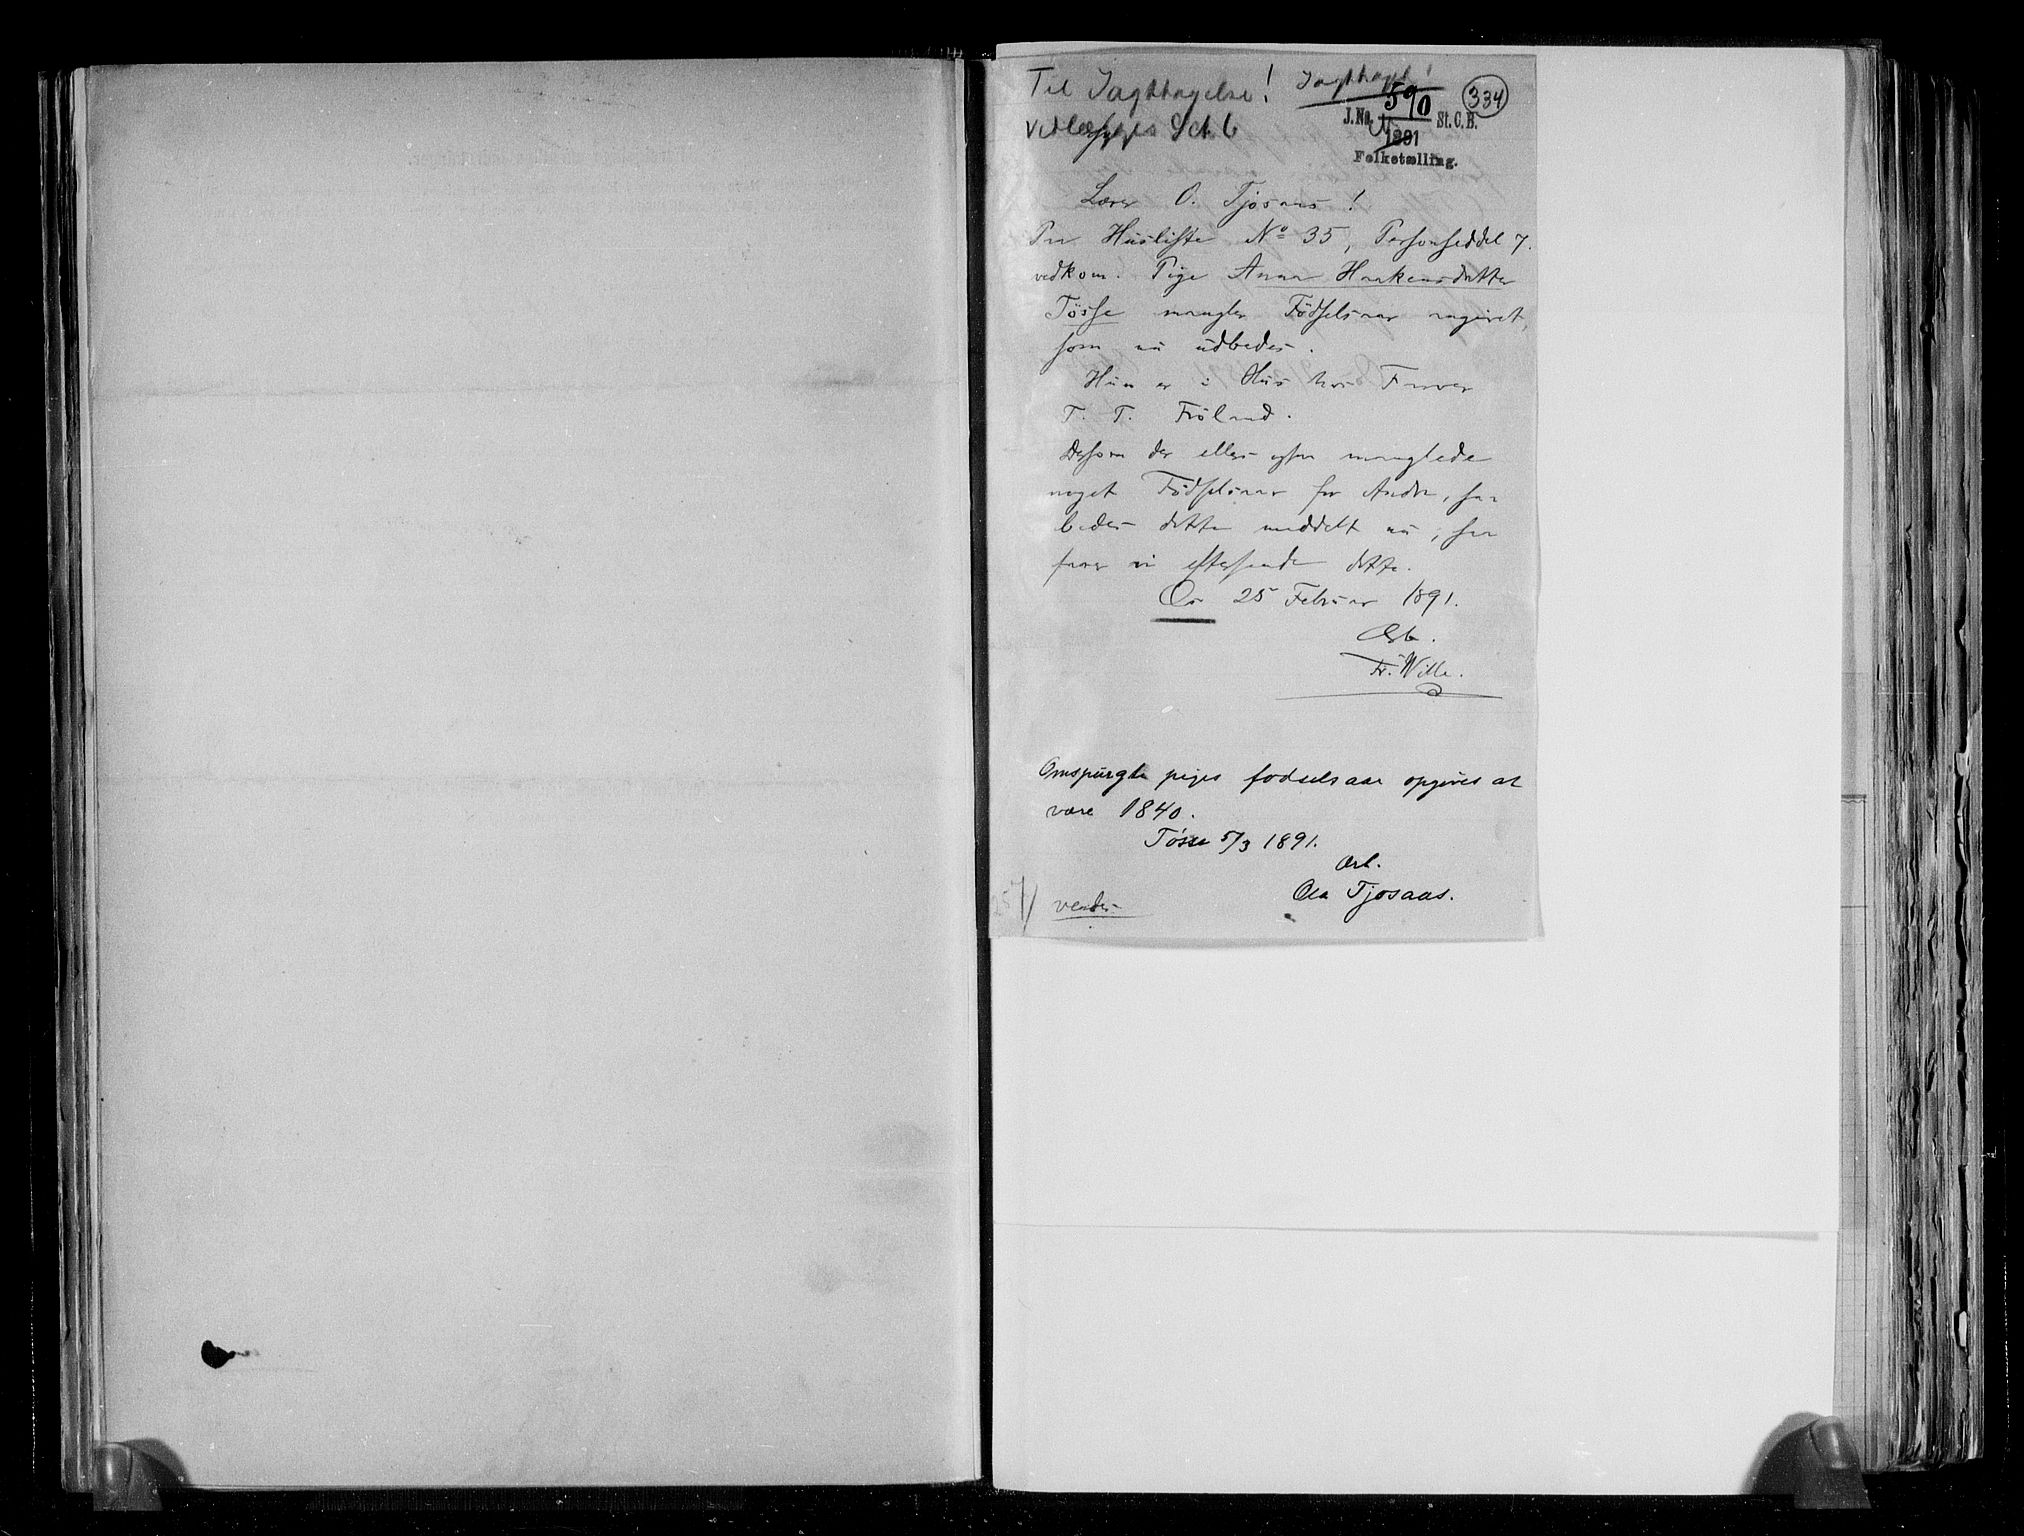 Til Iagttagelse! Iagttaget!
Vedlægges Sch. 6
334
J.No. 590 St.C.B.
1891
Folketælling.
Lærer O. Tjösaas!
Paa Husliste No 35, Personseddel 7.
vedkom. Pige Anna Haakensdatter
Tösse mangler Födselsaar angivet,
som nu udbedes.
Hun er i Hus hos Farver
T. T. Fröland.
Dersom der ellers ogsaa manglede
noget Födselsaar for Andre, saa
bedes dette meddelt nu, saa
faar vi eftersende dette.
Os 25 Februar 1891.
Ærb.
Fr. Wille.
Omspurgte piges fodselsaar opgives at
være 1840.
Tösse 5/3 1891.
Ærb.
Ola Tjosaas.
257/ vendes